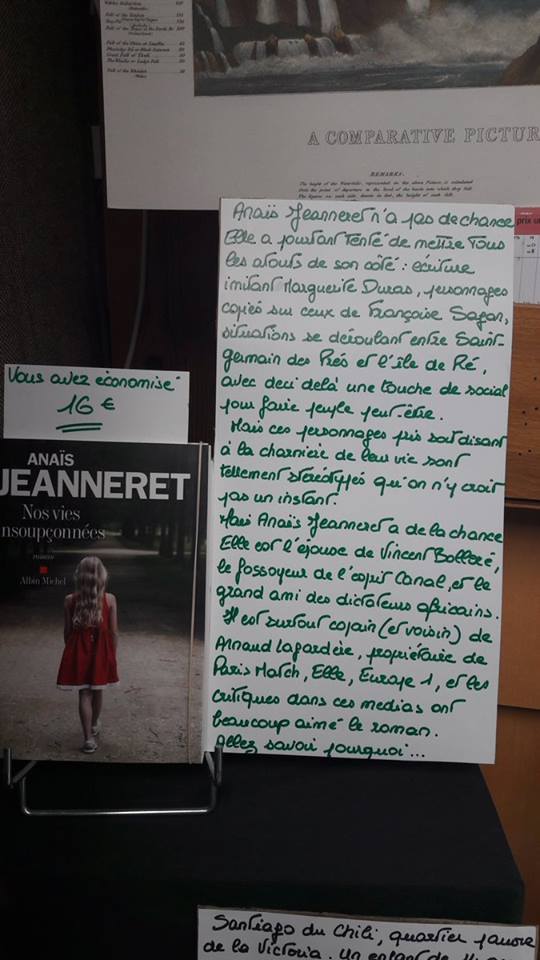 A COMPARATIVE PICTUR
REMARKS.
prix u
Anaïs Jeanneret n'a pas de chance
Elle a pourtant tenté de mettre tous
les atouts de son côté : écriture
imitant Marguerite Duras, personnages
copiés sur ceux de Françoise Sagan,
situations se déroulant entre Saint-
germain des Prés et l'île de Ré,
avec deci delà une touche de social
pour faire peuple peut-être.
Mais ces personnages pris soit disant
à la charnière de leur vie sont
tellement stéréotypés qu'on n'y croit
pas un instant.
Mais Anaïs Jeanneret a de la chance
Elle est l'épouse de Vincent Bolloré,
le fossoyeur de l'esprit Canal, et le
grand ami des dictateurs africains.
Il est surtout copain (et voisin) de
Arnaud Lagardère, propriétaire de
Paris Match, Elle, Europe 1, et les
critiques dans ces medias ont
beaucoup aimé le roman.
Allez savoir pourquoi...
Vous avez économisé
16 €
ANAÏS
JEANNERET
Nos vies
insoupçonnées
roman
Albin Michel
Santiago du Chili, quartier pauvre
de la Victoria. Un enfant de